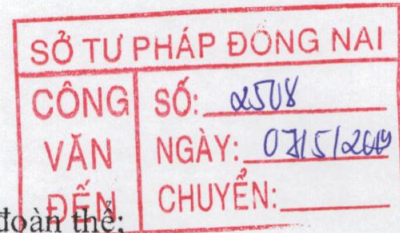 SỞ TƯ PHÁP ĐỒNG NAI
CÔNG VĂN ĐẾN
SỐ: 2508
NGÀY: 07/5/2019
CHUYỂN:
đoàn thể;